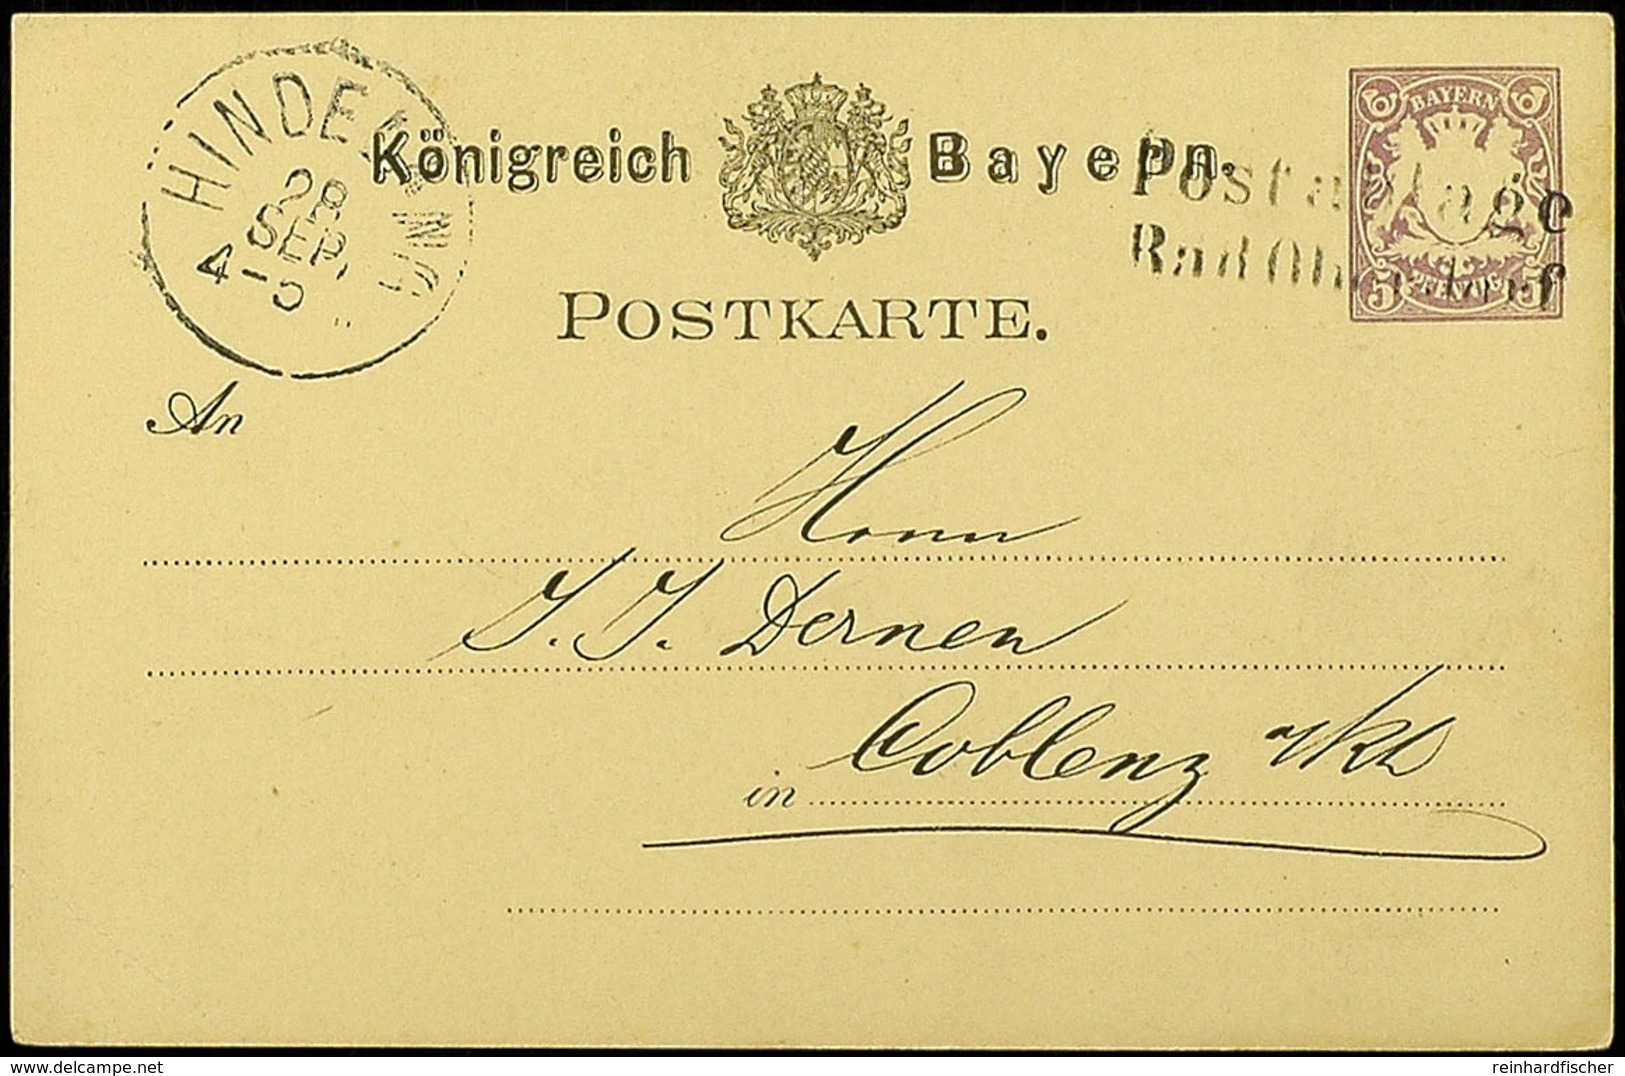 HINDEL
28
SEP.
4-5
Königreich Bayern.
BAYERN
5 PFENNIG 5
Postablage
POSTKARTE.
An
Herrn
J. J. Dernen
in Coblenz
www.delcampe.net
reinhardfischer